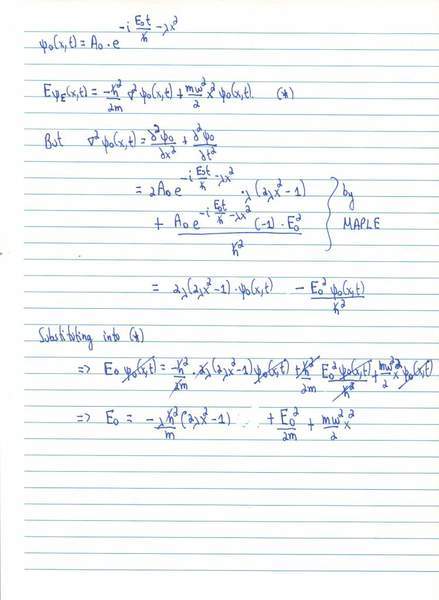 ψ₀(x,t) = A₀ · e^(-i E₀t/ℏ - λx²)
Eψ_E(x,t) = -ℏ²/2m ∇²ψ₀(x,t) + mω²/2 x² ψ₀(x,t). (*)
But ∇²ψ₀(x,t) = ∂²ψ₀/∂x² + ∂²ψ₀/∂t²
= 2A₀ e^(-i E₀t/ℏ - λx²) · λ(2λx²-1)
+ A₀ e^(-i E₀t/ℏ - λx²) (-1) · E₀² / ℏ²
} by MAPLE
= 2λ(2λx²-1) · ψ₀(x,t) - E₀² ψ₀(x,t)/ℏ²
Substituting into (*)
⇒ E₀ ψ₀(x,t) = -ℏ²/2m · 2λ(2λx²-1) ψ₀(x,t) + ℏ²/2m E₀² ψ₀(x,t)/ℏ² + mω²/2 x² ψ₀(x,t)
⇒ E₀ = -λℏ²/m (2λx²-1) + E₀²/2m + mω²/2 x²